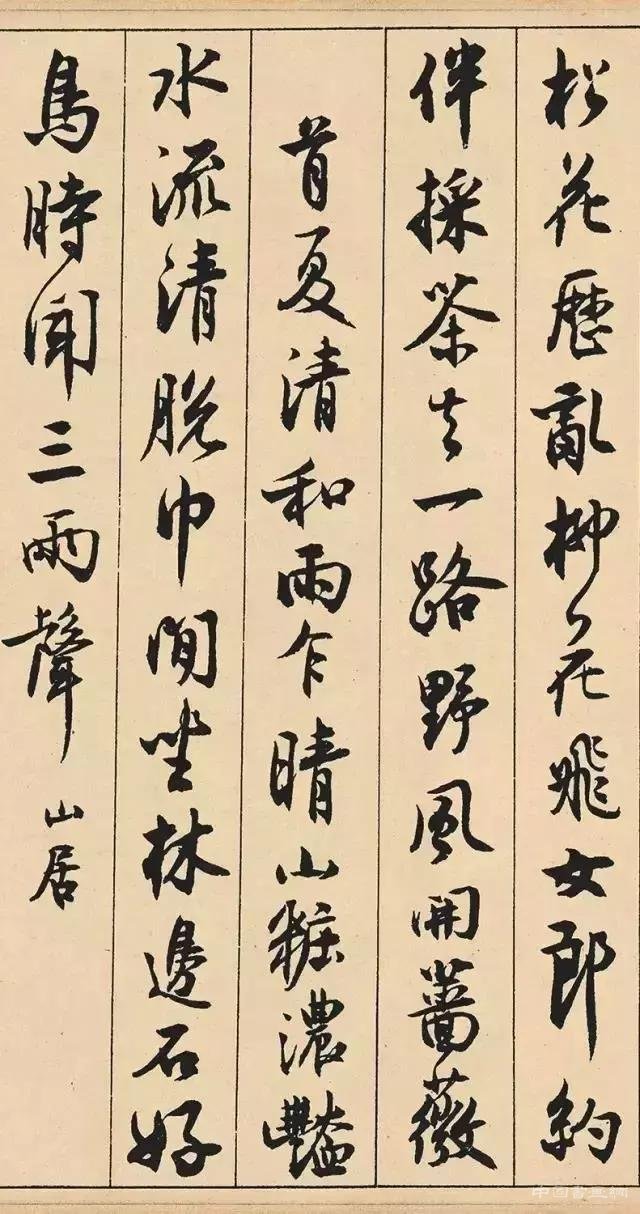 松花歷亂柳花飛女郎約
伴採茶去一路野風開薔薇
首夏清和雨乍晴山粧濃豔
水流清脫巾閒坐林邊石好
鳥時聞三兩聲 山居
中国書画網